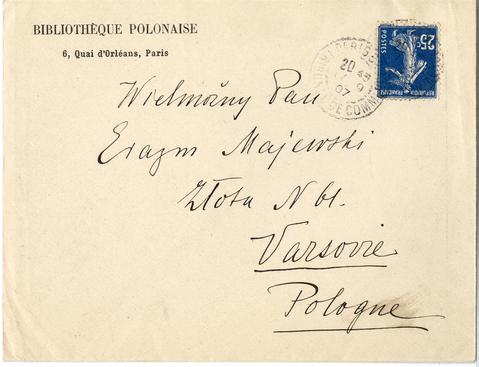 BIBLIOTHÈQUE POLONAISE
6, Quai d'Orléans, Paris
25c
POSTES
REPUBLIQUE FRANÇAISE
20
07
Wielmożny Pan
Erazm Majewski
Złota N 61.
Varsovie
Pologne